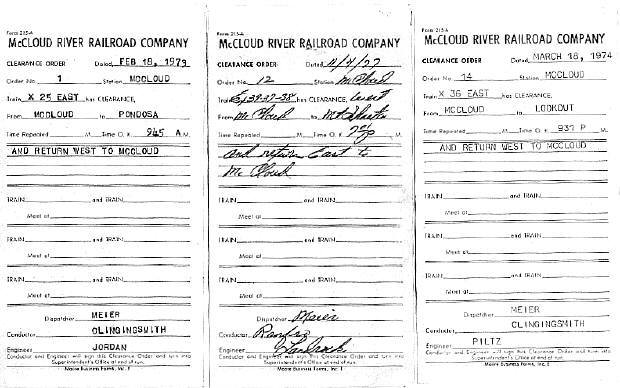 Form 213-A
McCLOUD RIVER RAILROAD COMPANY
CLEARANCE ORDER Dated, FEB 18, 1973
Order No. 1 Station MCCLOUD
Train X 25 EAST has CLEARANCE,
From MCCLOUD to PONDOSA
Time Repeated M Time O.K. 945 A M
AND RETURN WEST TO MCCLOUD
TRAIN and TRAIN
Meet at
TRAIN and TRAIN
Meet at
TRAIN and TRAIN
Meet at
Dispatcher MEIER
Conductor CLINGINGSMITH
Engineer JORDAN
Conductor and Engineer will sign this Clearance Order and turn into
Superintendent's Office at end of run.
Moore Business Forms, Inc. E
Form 213-A
McCLOUD RIVER RAILROAD COMPANY
CLEARANCE ORDER Dated 11/4/77
Order No. 12 Station McCloud
Train 39-37-38 has CLEARANCE, West
From McCloud to Mt Shasta
Time Repeated M Time O.K. M
and return East to
McCloud
TRAIN and TRAIN
Meet at
TRAIN and TRAIN
Meet at
TRAIN and TRAIN
Meet at
Dispatcher Maier
Conductor
Engineer
Conductor and Engineer will sign this Clearance Order and turn into
Superintendent's Office at end of run.
Moore Business Forms, Inc. E
Form 213-A
McCLOUD RIVER RAILROAD COMPANY
CLEARANCE ORDER Dated, MARCH 18, 1974
Order No. 14 Station MCCLOUD
Train X 36 EAST has CLEARANCE,
From MCCLOUD to LOOKOUT
Time Repeated M Time O.K. 937 P M
AND RETURN WEST TO MCCLOUD
TRAIN and TRAIN
Meet at
TRAIN and TRAIN
Meet at
TRAIN and TRAIN
Meet at
Dispatcher MEIER
Conductor CLINGINGSMITH
Engineer PILTZ
Conductor and Engineer will sign this Clearance Order and turn into
Superintendent's Office at end of run.
Moore Business Forms, Inc. E